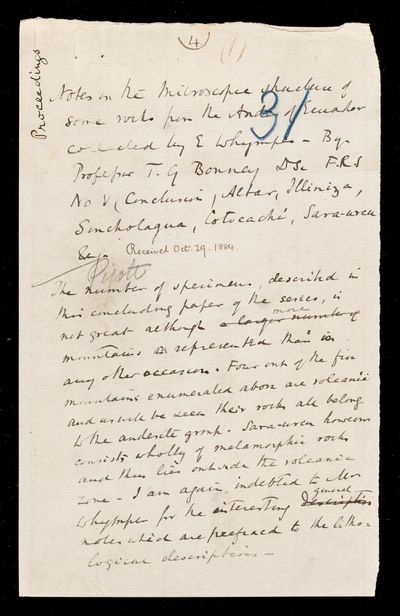 (4)
(1)
Proceedings
31
Notes on the Microscopic structure of
some rocks from the Andes of Ecuador
collected by E Whymper - By
Professor T. G Bonney DSc F.R.S
No V (Conclusion, Altar, Illiniza,
Sincholagua, Cotocachi, Sara-urcu
&c) - Received Oct. 29. 1884.
The number of specimens, described in
this concluding paper of the series, is
not great although a larger number of
more
mountains is represented than in
any other occasion. Four out of the five
mountains enumerated above are volcanic
and as will be seen their rocks all belong
to the andesite group. Sara-urcu however
consists wholly of metamorphic rocks
and thus lies outside the volcanic
zone - I am again indebted to Mr
Whymper for the interesting descriptive
general
notes which are prefixed to the litho-
logical descriptions -